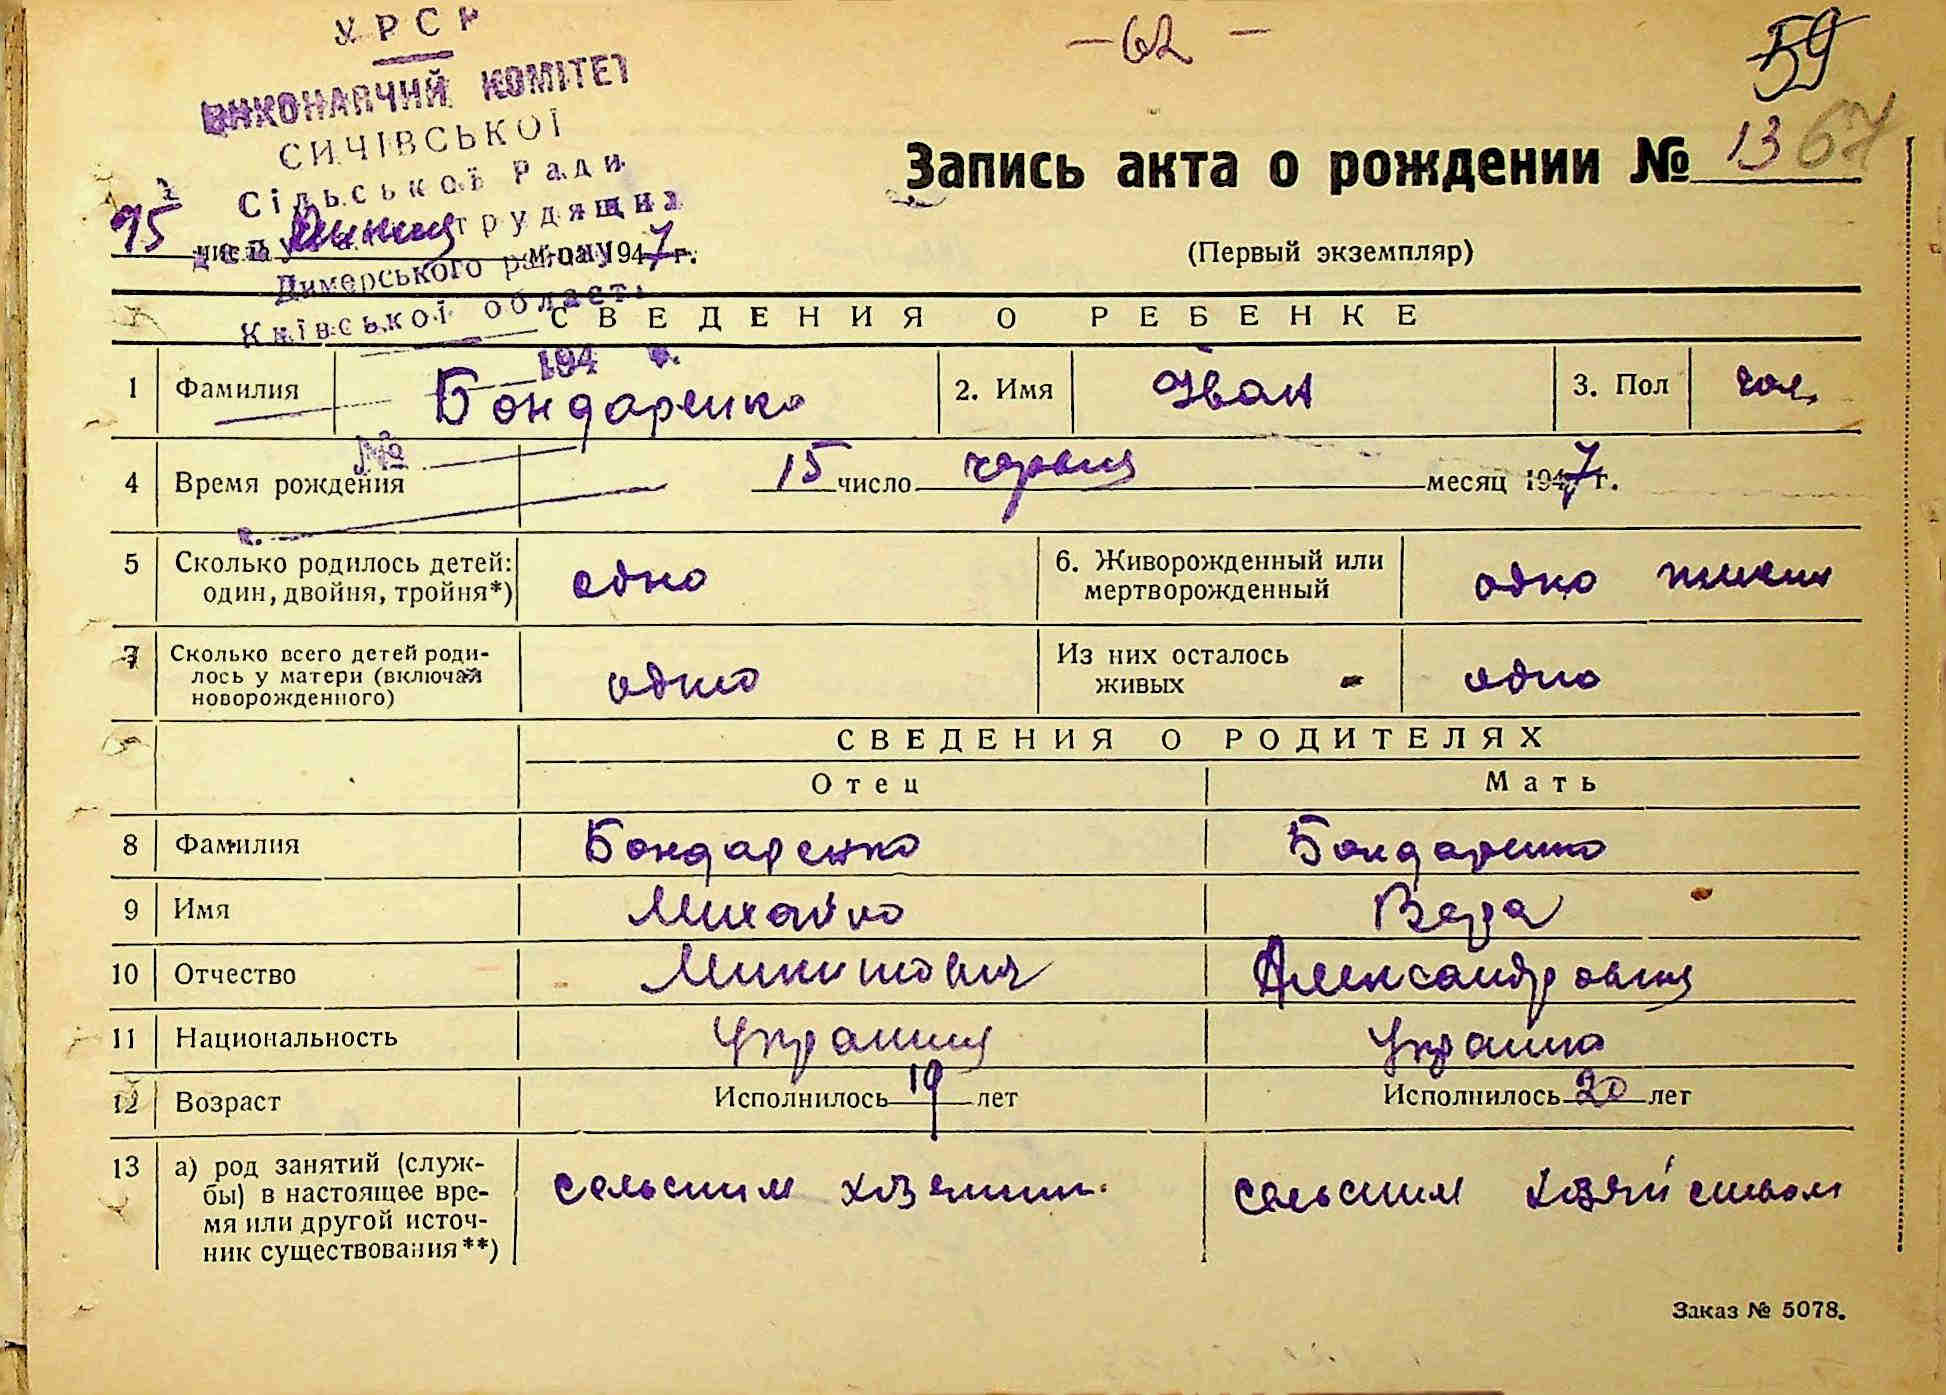 УРСР
— 62 —
59
ВИКОНАВЧИЙ КОМІТЕТ
СИЧІВСЬКОЇ
Сільської Ради
трудящих
Димерського району
Київської області
194 р.
№
Запись акта о рождении № 13 67
(Первый экземпляр)
числа м-ца 1947 г.
СВЕДЕНИЯ О РЕБЕНКЕ
1 Фамилия Бондаренко 2. Имя Іван 3. Пол чол.
4 Время рождения 15 число червня месяц 1947 г.
5 Сколько родилось детей: один, двойня, тройня*) одно 6. Живорожденный или мертворожденный одно
7 Сколько всего детей роди-
лось у матери (включая
новорожденного) одно Из них осталось живых одно
СВЕДЕНИЯ О РОДИТЕЛЯХ
Отец Мать
8 Фамилия Бондаренко Бондаренко
9 Имя Михайло Вера
10 Отчество Микитович Александровна
11 Национальность Українец Українка
12 Возраст Исполнилось 19 лет Исполнилось 20 лет
13 а) род занятий (служ-
бы) в настоящее вре-
мя или другой источ-
ник существования**) сельским сельским хозяйством
Заказ № 5078.